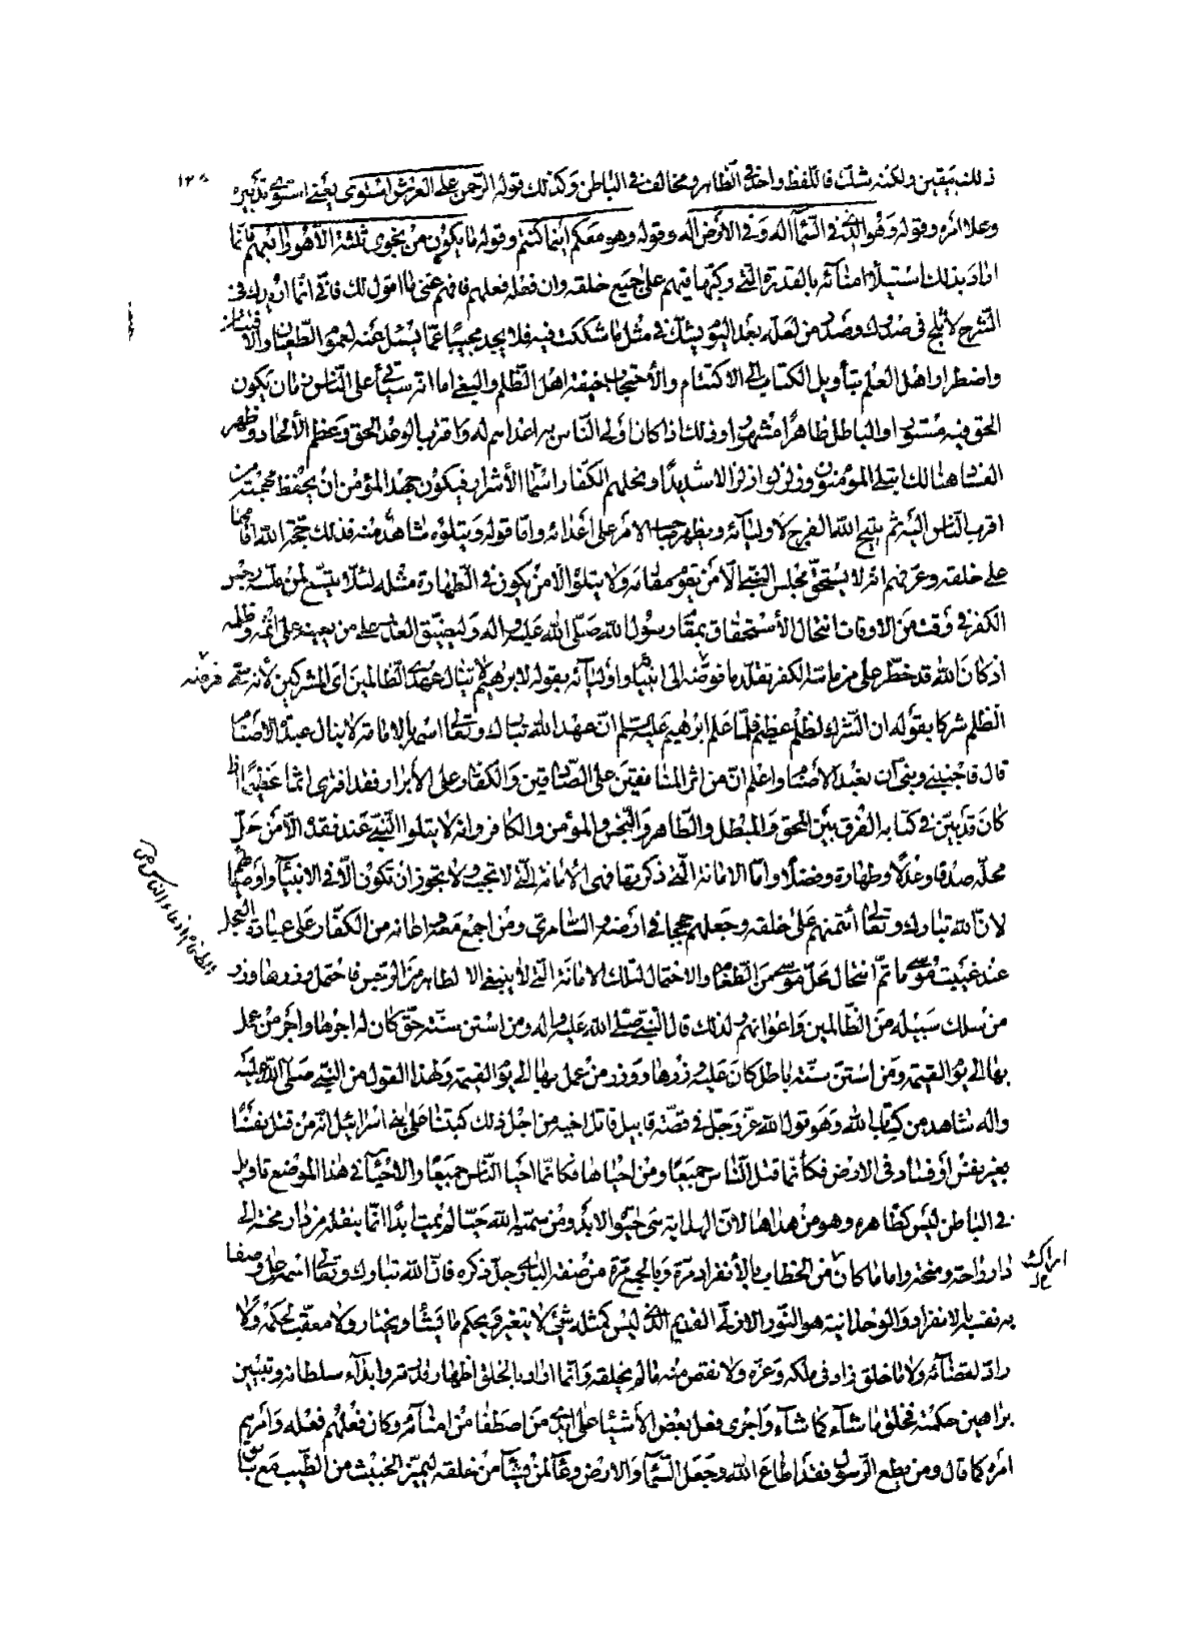 ١٢٨
ذلك بيقين ولكنه شك فاللفظ واحد فى الظاهر ومخالف فى الباطن وكذلك قوله الرحمن على العرش استوى يعنى استوى تدبيره
وعلا امره وقوله وهو الذى فى السماء اله وفى الارض اله وقوله وهو معكم اينما كنتم وقوله ما يكون من نجوى ثلثة الا هو رابعهم فانما
اراد بذلك استيلاء امنائه بالقدرة التى ركبها فيهم على جميع خلقه وان فعله فعلهم فافهم عنى ما اقول لك فانى انما ازيدك فى
الشرح لاثلج فى صدرك وصدر من لعله بعد اليوم يشك فى مثل ما شككت فيه فلا يجد مجيبا عما يسئل عنه لعموم الطغيان والافتتان
واضطرار اهل العلم بتأويل الكتاب الى الاكتتام والاحتجاب خيفة اهل الظلم والبغى اما انه سيأتى على الناس زمان يكون
الحق فيه مستورا والباطل ظاهرا مشهورا وذلك اذا كان اولى الناس به اعداهم له واقترب الوعد الحق وعظم الالحاد وظهر
الفساد هنالك ابتلى المؤمنون وزلزلوا زلزالا شديدا ونحلهم الكفار اسماء الاشرار فيكون جهد المؤمن ان يحفظ مهجته من
اقرب الناس اليه ثم يتيح الله الفرج لاوليائه ويظهر صاحب الامر على اعدائه واما قوله ويتلوه شاهد منه فذلك حجة الله اقامها
على خلقه وعرفهم انه لا يستحق مجلس النبى الا من يقوم مقامه ولا يتلوه الا من يكون فى الطهارة مثله لئلا يتسع لمن ماسه رجس
الكفر فى وقت من الاوقات انتحال الاستحقاق بمقام رسول الله صلى الله عليه واله وليضيق العذر على من يعينه على اثمه وظلمه
اذ كان الله قد حظر على من ماسه الكفر تقلد ما فوضه الى انبيائه واوليائه بقوله لابرهيم لا ينال عهدى الظالمين اى المشركين لانه سمى
الظلم شركا بقوله ان الشرك لظلم عظيم فلما علم ابرهيم عليه السلم ان عهد الله تبارك وتعالى اسمه بالامامة لا ينال عبدة الاصنام
قال فاجنبنى وبنى ان نعبد الاصنام واعلم ان من اثر المنافقين على الصادقين والكفار على الابرار فقد افترى اثما عظيما اذ
كان قد بين فى كتابه الفرق بين المحق والمبطل والطاهر والنجس والمؤمن والكافر وانه لا يتلوا النبى عند فقده الا من حل
محله صدقا وعدلا وطهارة وفضلا واما الامانة التى ذكرتها فهى الامانة التى لا تجب ولا يجوز ان تكون الا فى الانبياء واوصيائهم
لان الله تبارك وتعالى ائتمنهم على خلقه وجعلهم حججا فى ارضه والسامرى ومن اجمع معه واعانه من الكفار على عبادة العجل
عند غيبة موسى ما تم انتحال محل موسى من الطغام والاحتمال لتلك الامانة التى لا ينبغى الا لطاهر من الرجس فاحتمل وزرها ووزر
من سلك سبيله من الظالمين واعوانهم ولذلك قال النبى صلى الله عليه واله ومن استن سنة حق كان له اجرها واجر من عمل
بها الى يوم القيمة ومن استن سنة باطل كان عليه وزرها ووزر من عمل بها الى يوم القيمة ولهذا القول من النبى صلى الله عليه
واله شاهد من كتاب الله وهو قول الله عز وجل فى قصة قابيل قاتل اخيه من اجل ذلك كتبنا على بنى اسرائيل انه من قتل نفسا
بغير نفس او فساد فى الارض فكأنما قتل الناس جميعا ومن احياها فكأنما احيا الناس جميعا والاحياء فى هذا الموضع تأويل
فى الباطن ليس كظاهره وهو من هداها لان الهداية هى حيوة الابد ومن سماه الله حيا لم يمت ابدا انما ينقله من دار محنة الى
دار راحة ومنحة واما ما كان من الخطاب بالانفراد مرة وبالجمع مرة من صفة البارى جل ذكره فان الله تبارك وتعالى اسمه على ما وصف
به نفسه بالانفراد والوحدانية هو النور الازلى القديم الذى ليس كمثله شئ لا يتغير ويحكم ما يشاء ويختار ولا معقب لحكمه ولا
راد لقضائه ولا ما خلق زاد فى ملكه وعزه ولا نقص منه ما لم يخلقه وانما اراد بالخلق اظهار قدرته وابداء سلطانه وتبيين
براهين حكمته فخلق ما شاء كما شاء واجرى فعل بعض الاشياء على ايدى من اصطفا من امنائه وكان فعلهم فعله وامرهم
امره كما قال ومن يطع الرسول فقد اطاع الله وجعل السماء والارض وعاء لمن يشاء من خلقه ليميز الخبيث من الطيب مع سابق
فرضه
الطغام اوغاد الناس ص